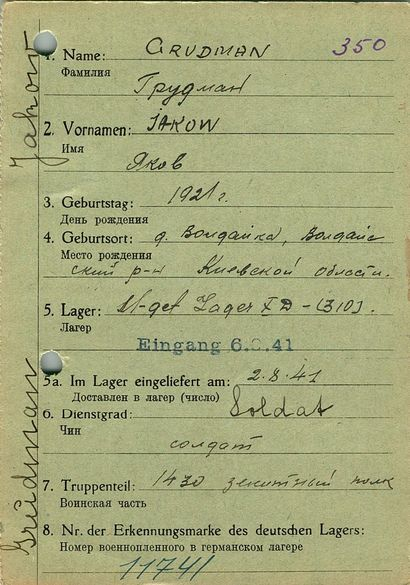 350
1. Name: GRUDMAN
Фамилия Грудман
2. Vornamen: JAKOW
Имя Яков
3. Geburtstag: 1921 г.
День рождения
4. Geburtsort: д. Волдайка, Волдай
Место рождения
ский р-н Киевской области.
5. Lager: Lager XD - (310).
Лагер
Eingang 6. .41
5a. Im Lager eingeliefert am: 2.8.41
Доставлен в лагер (число)
6. Dienstgrad: Soldat
Чин солдат
7. Truppenteil: 1430 зенитный полк
Воинская часть
8. Nr. der Erkennungsmarke des deutschen Lagers:
Номер военнопленного в германском лагере
11741
Grudman Jakow